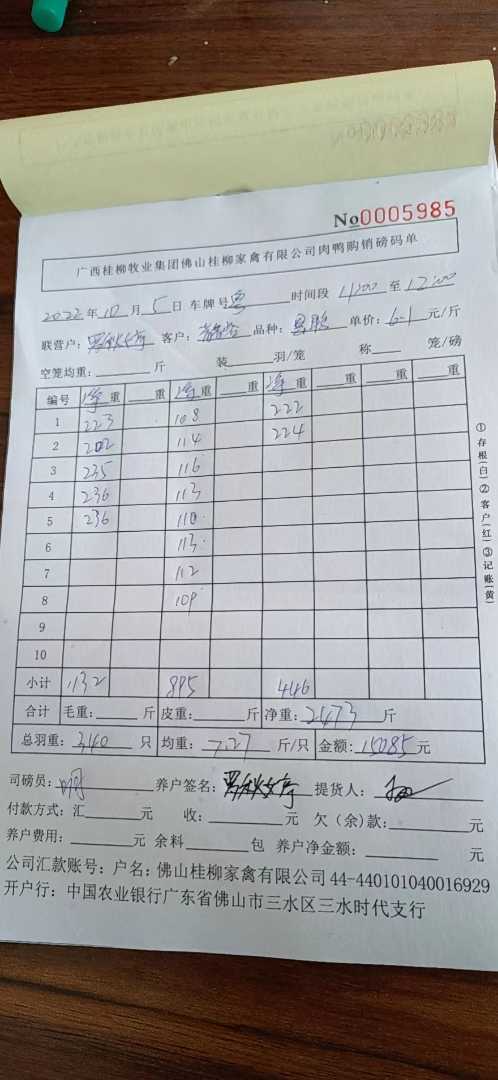 No0005985
广西桂柳牧业集团佛山桂柳家禽有限公司肉鸭购销磅码单
2022年10月5日 车牌号粤 时间段 至12:00
联营户: 客户: 品种: 单价:6.1元/斤
空笼均重: 斤 装 羽/笼 称 笼/磅
编号 净重 重 净重 重 净重 重 重 重
1 223 108 222
2 202 114 224
3 235 116
4 236 113
5 236 110
6 113
7 112
8 109
9
10
小计 1132 895 446
合计 毛重: 斤 皮重: 斤 净重:2473斤
总羽重:340只 均重:7.27斤/只 金额:15085元
司磅员: 养户签名: 提货人:
付款方式:汇 元 收: 元 欠(余)款: 元
养户费用: 元 余料 包 养户净金额: 元
公司汇款账号:户名:佛山桂柳家禽有限公司 44-440101040016929
开户行:中国农业银行广东省佛山市三水区三水时代支行
①存根(白)②客户(红)③记账(黄)